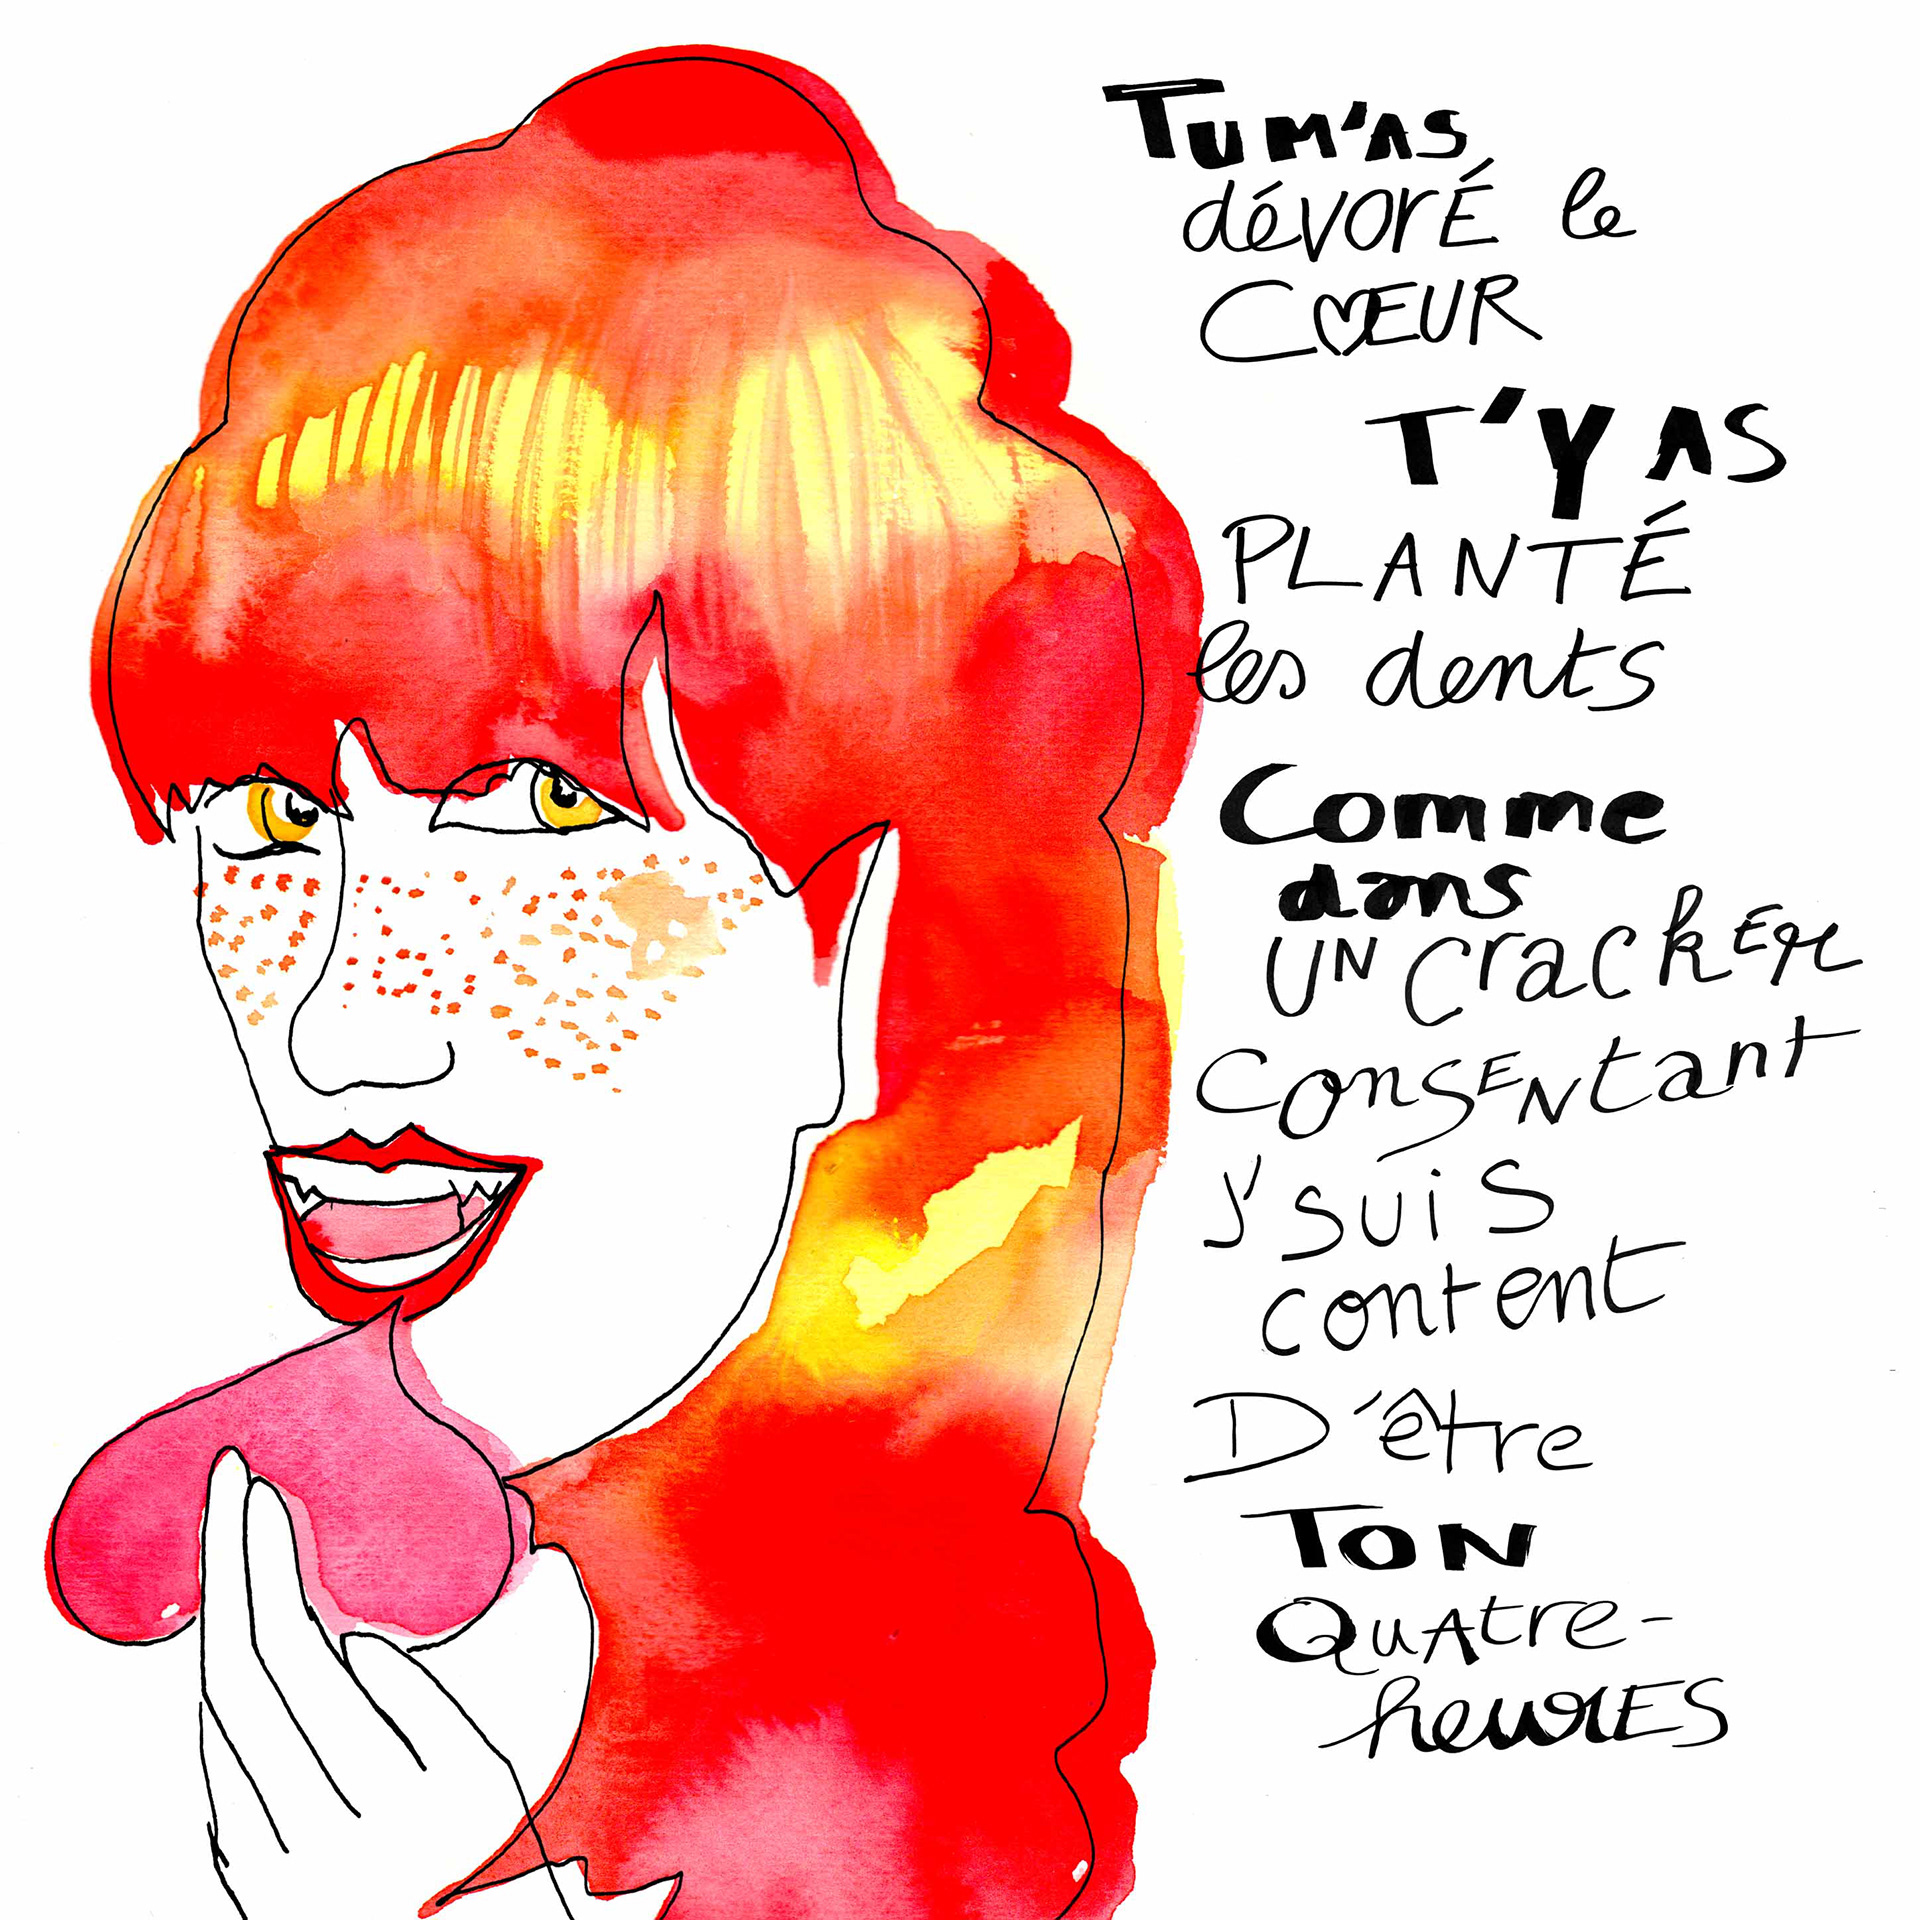 Tu m'as
dévoré le
CŒUR
T'Y AS
PLANTÉ
les dents
Comme
dans
UN cracker
consentant
J'suis
content
D'être
TON
Quatre-
heures